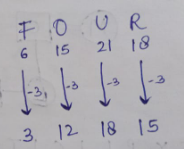 F O U R
6 15 21 18
-3 -3 -3 -3
3 12 18 15